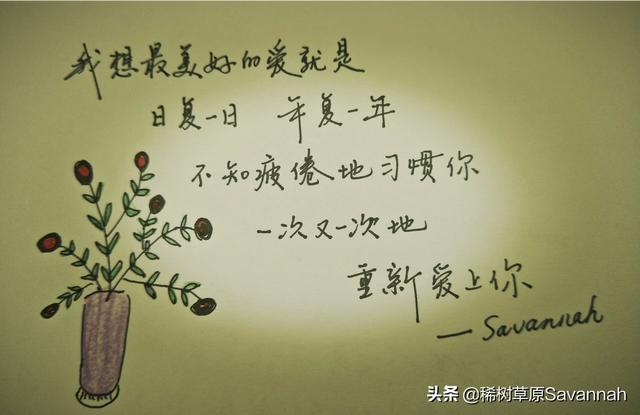 我想最美好的爱就是
日复一日 年复一年
不知疲倦地习惯你
一次又一次地
重新爱上你
—Savannah
头条 @稀树草原Savannah